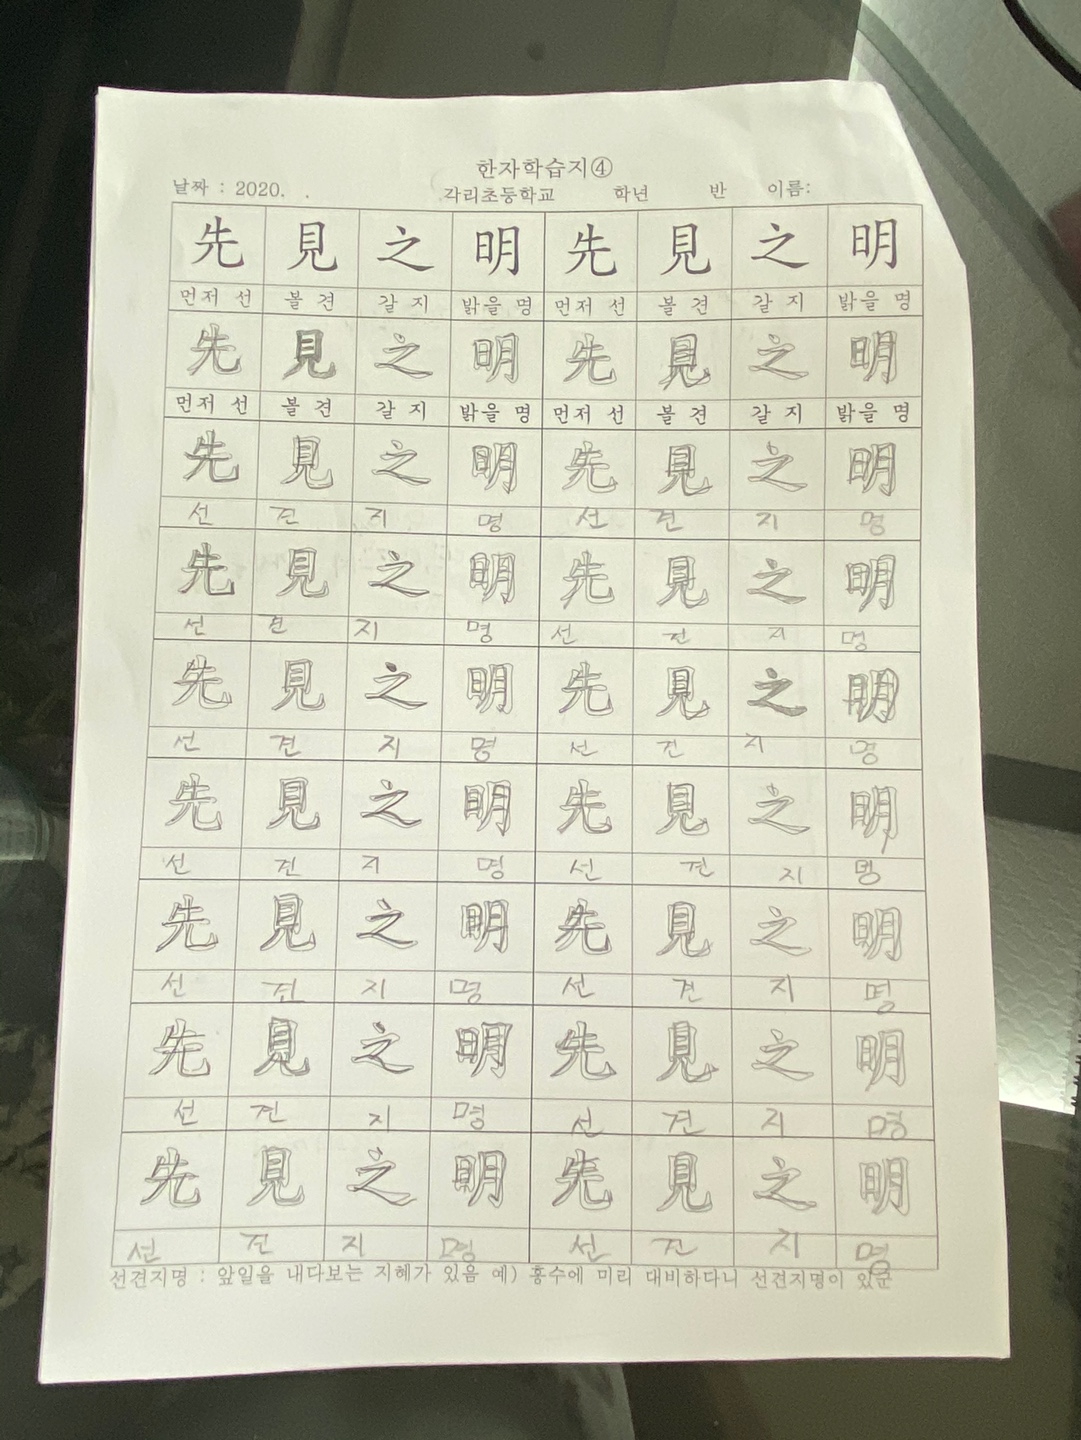 한자학습지④
날짜 : 2020. . 각리초등학교 학년 반 이름:
先 見 之 明 先 見 之 明
먼저 선 볼 견 갈 지 밝을 명 먼저 선 볼 견 갈 지 밝을 명
先 見 之 明 先 見 之 明
먼저 선 볼 견 갈 지 밝을 명 먼저 선 볼 견 갈 지 밝을 명
先 見 之 明 先 見 之 明
선 견 지 명 선 견 지 명
先 見 之 明 先 見 之 明
선 견 지 명 선 견 지 명
先 見 之 明 先 見 之 明
선 견 지 명 선 견 지 명
先 見 之 明 先 見 之 明
선 견 지 명 선 견 지 명
先 見 之 明 先 見 之 明
선 견 지 명 선 견 지 명
先 見 之 明 先 見 之 明
선 견 지 명 선 견 지 명
先 見 之 明 先 見 之 明
선 견 지 명 선 견 지 명
선견지명 : 앞일을 내다보는 지혜가 있음 예) 홍수에 미리 대비하다니 선견지명이 있군